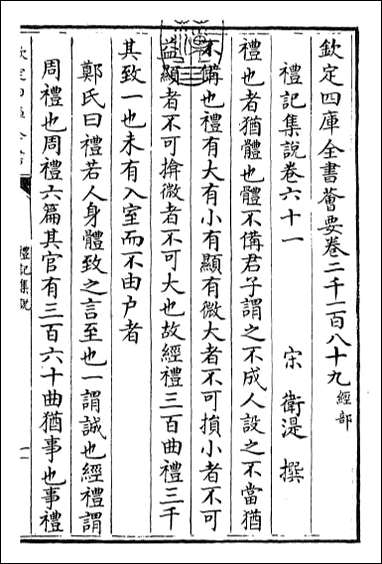 欽定四庫全書薈要卷二千一百八十九 經部
禮記集說卷六十一
宋 衛湜 撰
禮也者猶體也體不備君子謂之不成人設之不當猶
不備也禮有大有小有顯有微大者不可損小者不可
益顯者不可揜微者不可大也故經禮三百曲禮三千
其致一也未有入室而不由户者
鄭氏曰禮若人身體致之言至也一謂誠也經禮謂
周禮也周禮六篇其官有三百六十曲猶事也事禮
禮記集說
一